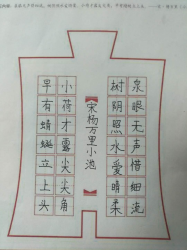 泉眼无声惜细流
树阴照水爱晴柔
【宋杨万里小池】
小荷才露尖尖角
早有蜻蜓立上头